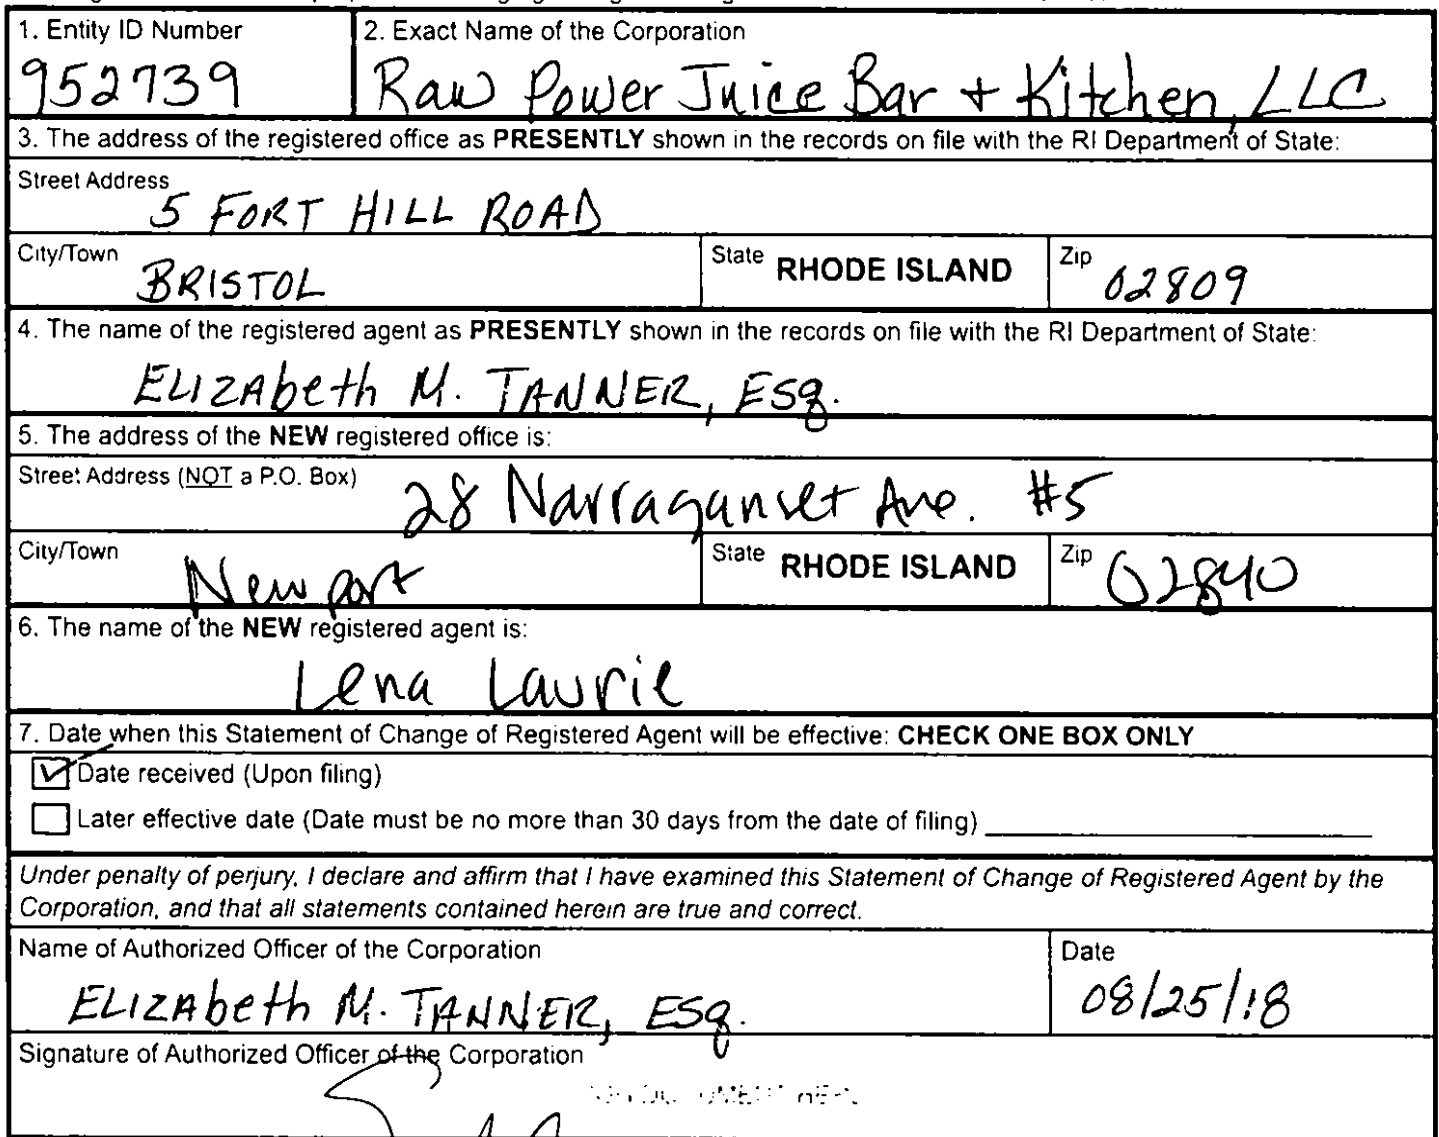 1. Entity ID Number
952739
2. Exact Name of the Corporation
Raw Power Juice Bar + Kitchen, LLC
3. The address of the registered office as PRESENTLY shown in the records on file with the RI Department of State:
Street Address
5 FORT HILL ROAD
City/Town
BRISTOL
State RHODE ISLAND
Zip
02809
4. The name of the registered agent as PRESENTLY shown in the records on file with the RI Department of State:
ELIZAbeth M. TANNER, ESq.
5. The address of the NEW registered office is:
Street Address (NOT a P.O. Box)
28 Narraganset Ave. #5
City/Town
Newport
State RHODE ISLAND
Zip
02840
6. The name of the NEW registered agent is:
Lena Laurie
7. Date when this Statement of Change of Registered Agent will be effective: CHECK ONE BOX ONLY
Date received (Upon filing)
Later effective date (Date must be no more than 30 days from the date of filing)
Under penalty of perjury, I declare and affirm that I have examined this Statement of Change of Registered Agent by the
Corporation, and that all statements contained herein are true and correct.
Name of Authorized Officer of the Corporation
ELIZAbeth M. TANNER, ESq.
Date
08/25/18
Signature of Authorized Officer of the Corporation